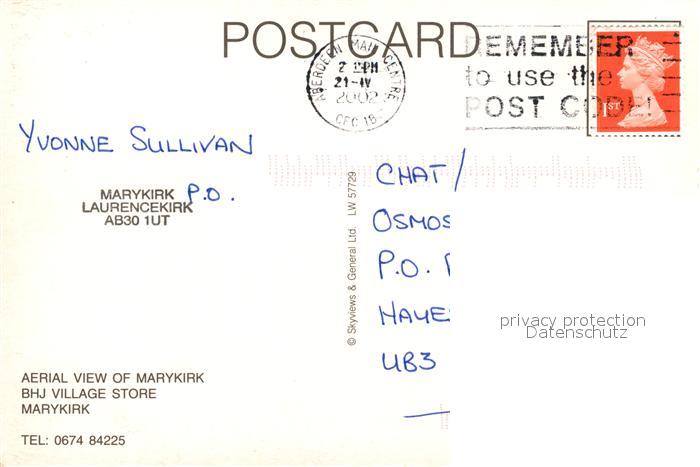 POSTCARD
ABERDEEN MAIL CENTRE
21-IV
2002
REMEMBER
to use the
POST CODE!
1ST
YVONNE SULLIVAN
MARYKIRK P.O.
LAURENCEKIRK
AB30 1UT
© Skyviews & General Ltd. LW 57729
CHAT/
OSMOS
P.O.
HAYE
UB3
privacy protection
Datenschutz
AERIAL VIEW OF MARYKIRK
BHJ VILLAGE STORE
MARYKIRK
TEL: 0674 84225